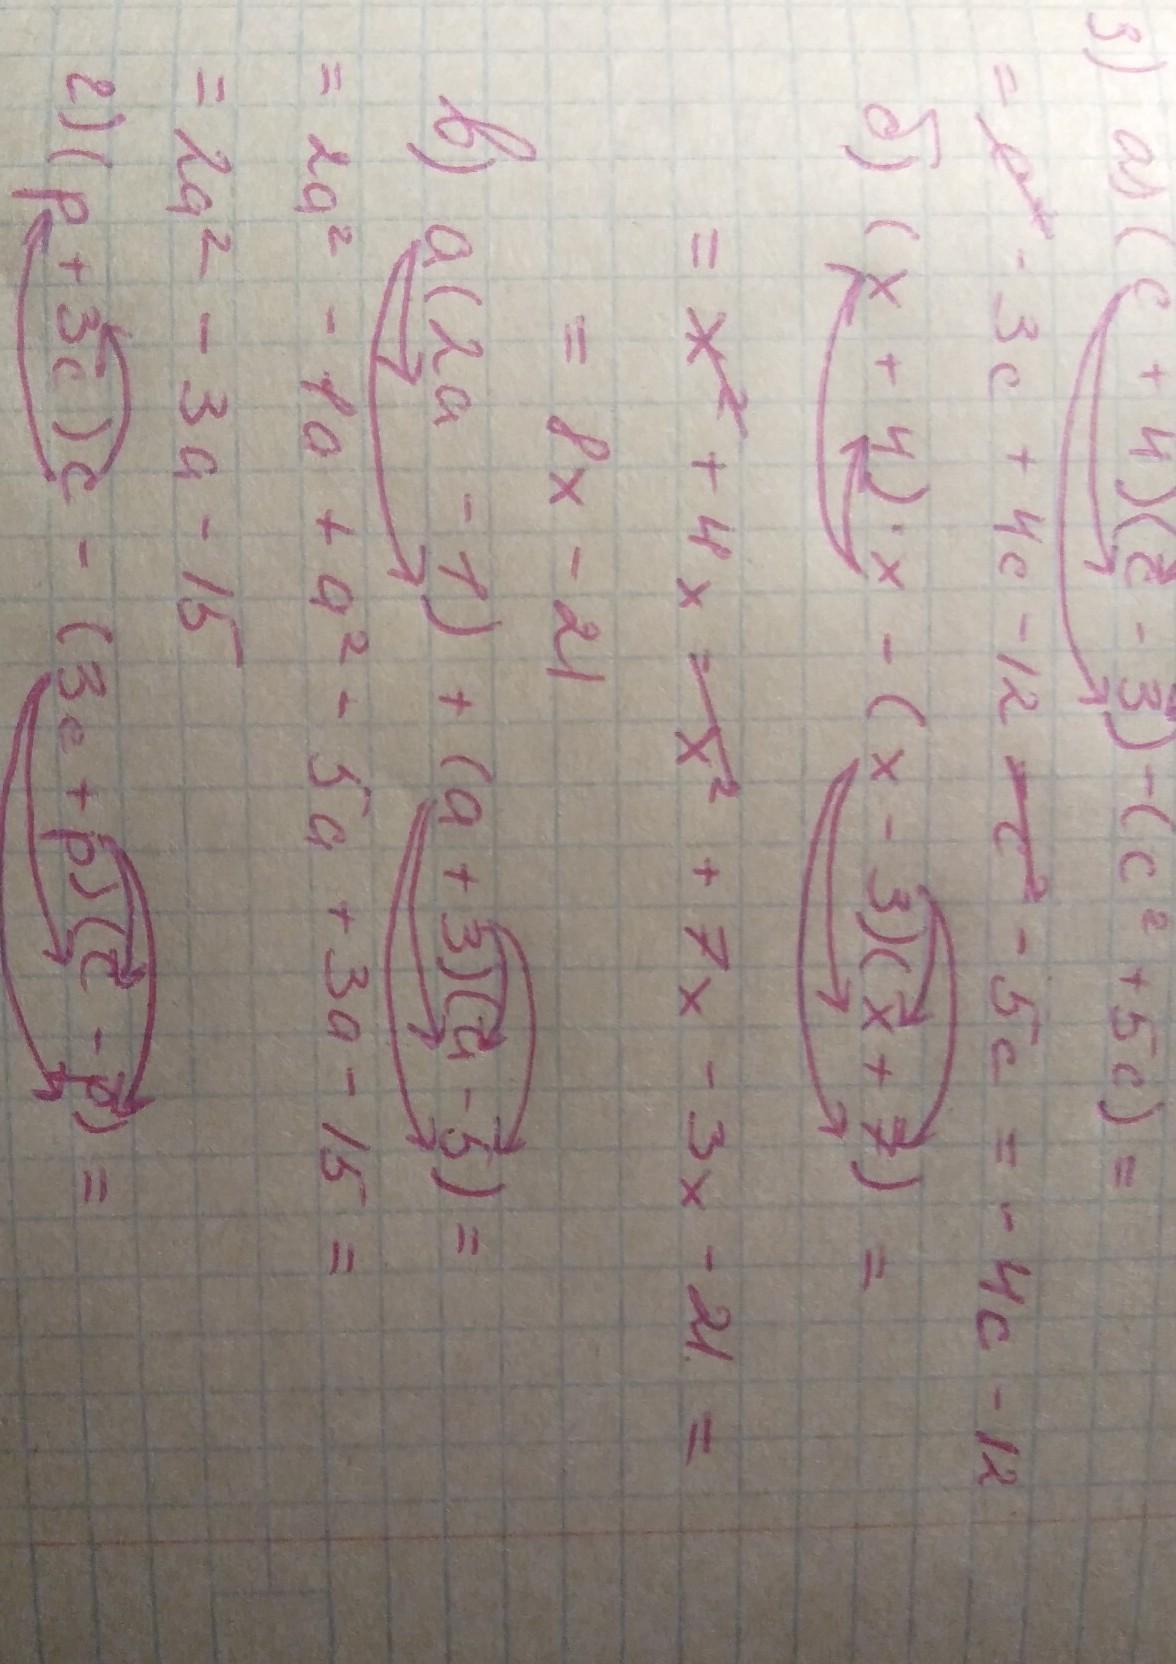 3) а) (c + 4)(c - 3) - (c² + 5c) =
= c² - 3c + 4c - 12 - c² - 5c = - 4c - 12
б) (x + 4)·x - (x - 3)(x + 7) =
= x² + 4x - x² + 7x - 3x - 21 =
= 8x - 21
в) a(2a - 1) + (a + 3)(a - 5) =
= 2a² - 1a + a² - 5a + 3a - 15 =
= 2a² - 3a - 15
г) (p + 3c)c - (3c + p)(c - p) =